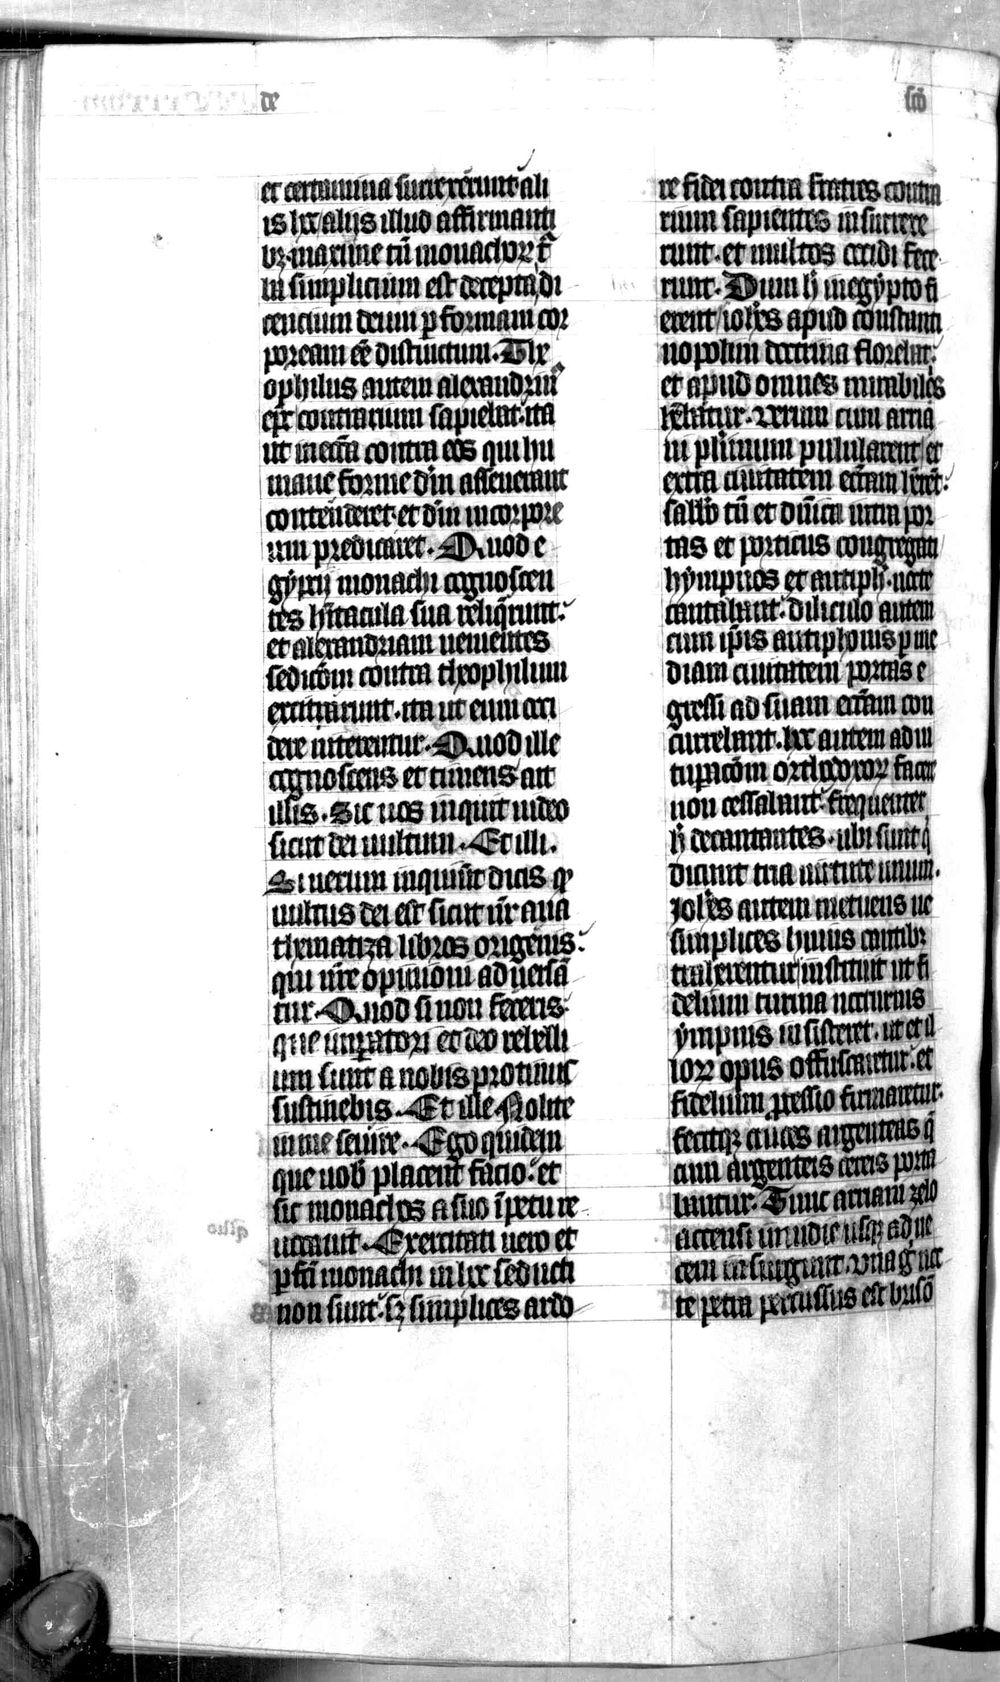 de
sco
et certamina surrexerunt ali
is hec aliis illud affirmanti
bz. maxime tñ monachoꝝ t̃
ba simplicium est decepta, di
cencium deum ꝑ formam cor
poream eē distinctum. The
ophilus autem alexandrinꝰ
ep̃c contrarium sapiebat. ita
ut in ecc̃a contra eos qui hu
mane forme dm̄ asseuerant
contenderet. et dm̄ incorpore
um predicaret. Quod e
gyptij monachi cognoscen
tes hītacula sua reliq̃runt:
et alexandriam uenientes
sedicōm contra theophylum
excitarunt. ita ut eum occi
dere niterentur. Quod ille
cognoscens et timens ait
illis. Sic uos inquit uideo
sicut dei uultum. Et illi.
Si uerum inquiūt dicis ꝙ
uultus dei est sicut nr̄ ana
thematiza libros origenis:
qui nr̄e opinioni aduersā
tur. Quod si non feceris.
que imꝑatori et deo rebelli
um sunt a nobis protinus
sustinebis. Et ille Nolite
in me seuire. Ego quidem
que uob̄ placent facio. et
sic monachos a suo īpetu re
uocauit. Exercitati uero et
ꝑfcī monachi in hec seducti
non sunt. sꝫ simplices ardo
re fidei contra fratres contra
rium sapientes insurrexe
runt. et multos occidi fece
runt. Dum h̄ in egypto fi
erent ioh̄es apud constanti
nopolim doctrina florebat.
et apud omnes mirabiles
h̄ebatur. Verum cum arria
ni plīmum pulularent et
extra ciuitatem ecc̃am h̄erēt:
sabb̄o tñ et dn̄ica intra por
tas et porticus congregati
hympnos et antiph̄. nocte
cantabant. diliculo autem
cum ip̄is antiphonis ꝑ me
diam ciuitatem portas e
gressi ad suam ecc̃am con
currebant. hec autem ad ui
tuꝑacōm orthodoxoꝝ facere
non cessabant. frequenter
h̄ decantantes. ubi sunt q̄
dicunt tria uirtute unum.
Ioh̄es autem metuens ne
simplices huius cantibz
traherentur instituit ut fi
delium turma nocturnis
ympnis insisteret. ut et il
loꝝ opus offuscaretur. et
fidelium ꝓfessio firmaretur.
fecitqꝫ cruces argenteas q̄
cum argenteis cereis porta
bantur. Tunc arriani zelo
accensi
cem insurgunt. Vna g̃ noc
te petra percussus est brisō